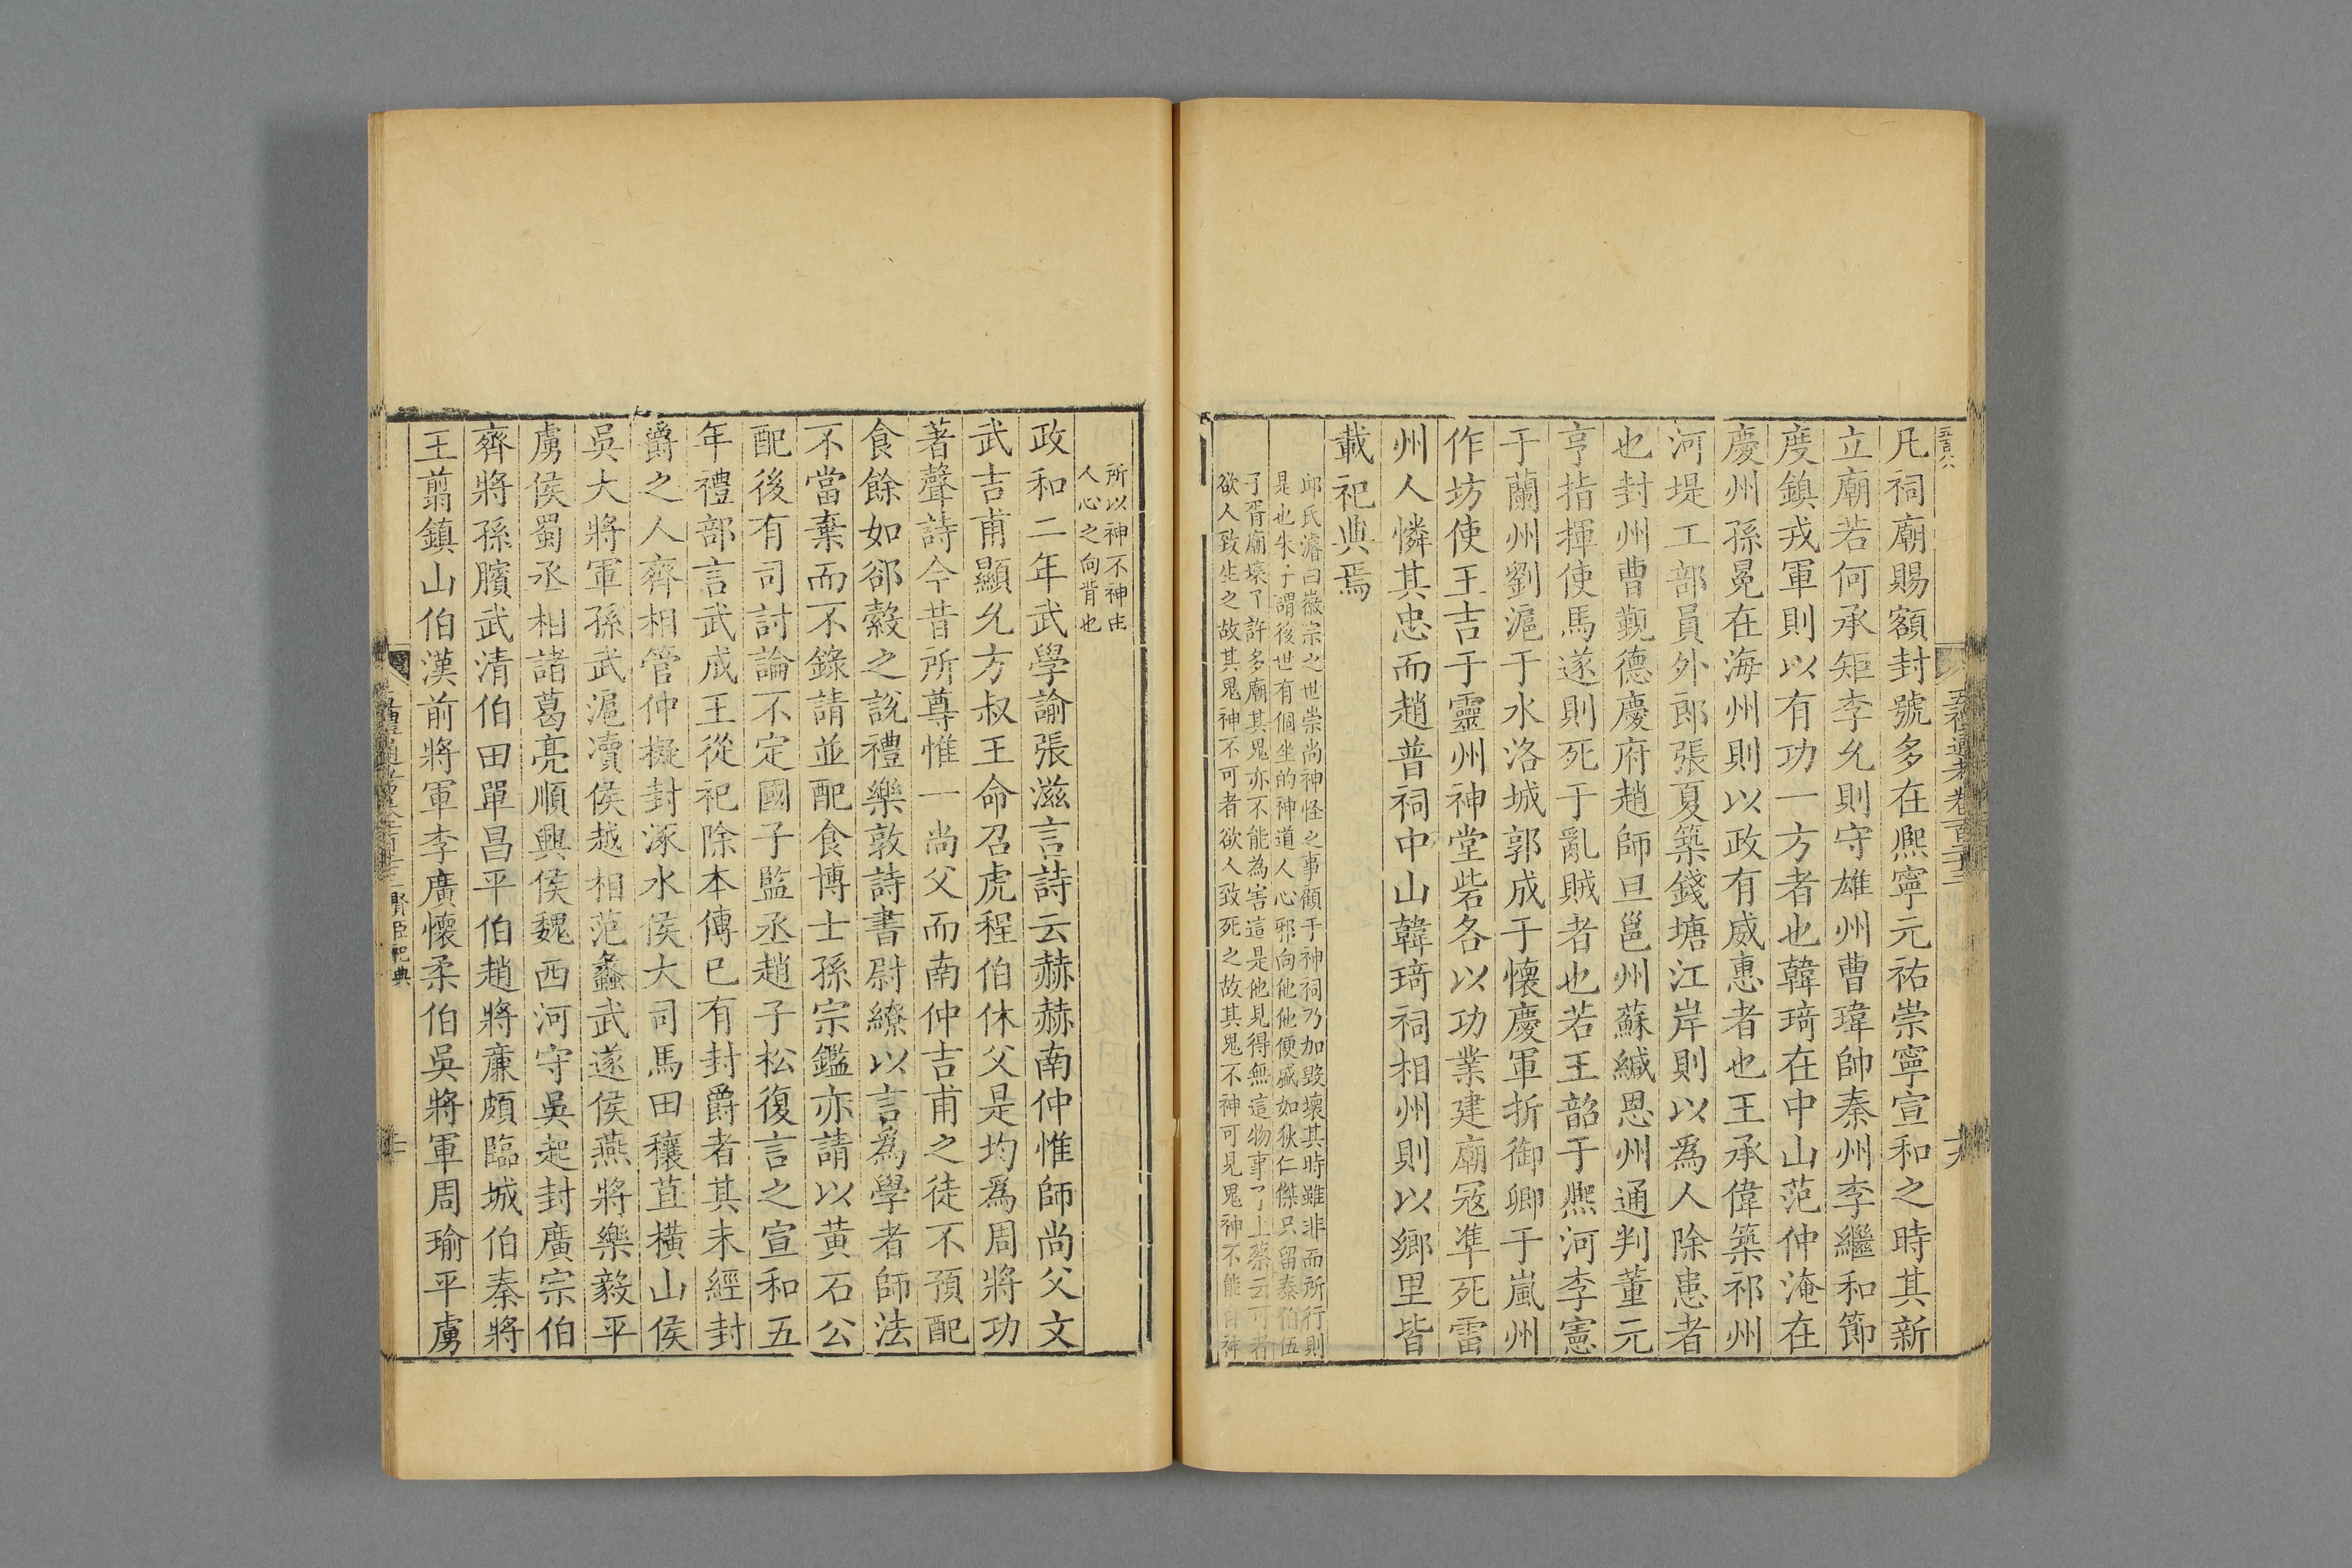 五百八
五禮通考卷一百二十二
十九
凡祠廟賜額封號多在熈寧元祐崇寧宣和之時其新
立廟若何承矩李允則守雄州曹瑋帥秦州李繼和節
度鎮戎軍則以有功一方者也韓琦在中山范仲淹在
慶州孫冕在海州則以政有威惠者也王承偉築祁州
河堤工部員外郎張夏築錢塘江岸則以為人除患者
也封州曹覲德慶府趙師旦邕州蘇緘恩州通判董元
亨指揮使馬遂則死于亂賊者也若王韶于熈河李憲
于蘭州劉滬于水洛城郭成于懷慶軍折御卿于嵐州
作坊使王吉于靈州神堂砦各以功業建廟冦凖死雷
州人憐其忠而趙普祠中山韓琦祠相州則以鄉里皆
載祀典焉
邱氏濬曰徽宗之世崇尚神怪之事顧于神祠乃加毀壞其時雖非而所行則
是也朱子謂後世有個坐的神道人心邪向他他便盛如狄仁傑只留泰伯伍
子胥廟壞了許多廟其鬼亦不能為害這是他見得無這物事了上蔡云可者
欲人致生之故其鬼神不可者欲人致死之故其鬼不神可見鬼神不能自神
所以神不神由
人心之向背也
政和二年武學諭張滋言詩云赫赫南仲惟師尚父文
武吉甫顯允方叔王命召虎程伯休父是均為周將功
著聲詩今昔所尊惟一尚父而南仲吉甫之徒不預配
食餘如郤縠之說禮樂敦詩書尉繚以言為學者師法
不當棄而不錄請並配食博士孫宗鑑亦請以黃石公
配後有司討論不定國子監丞趙子松復言之宣和五
年禮部言武成王從祀除本傳已有封爵者其未經封
爵之人齊相管仲擬封涿水侯大司馬田穰苴橫山侯
吳大將軍孫武滬瀆侯越相范蠡武遂侯燕將樂毅平
虜侯蜀丞相諸葛亮順興侯魏西河守吳起封廣宗伯
齊將孫臏武清伯田單昌平伯趙將廉頗臨城伯秦將
王翦鎮山伯漢前將軍李廣懷柔伯吳將軍周瑜平虜
賢臣祀典